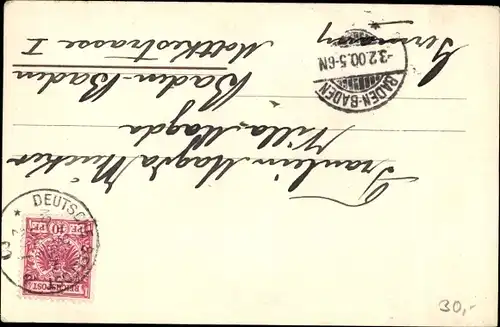 Fräulein Magda Mücker
Villa Magda
Baden-Baden
Moltkestrasse I
Germany
BADEN-BADEN
-3.2.00.5-6N
DEUTSCH
10 PF 10
REICHSPOST
30,-